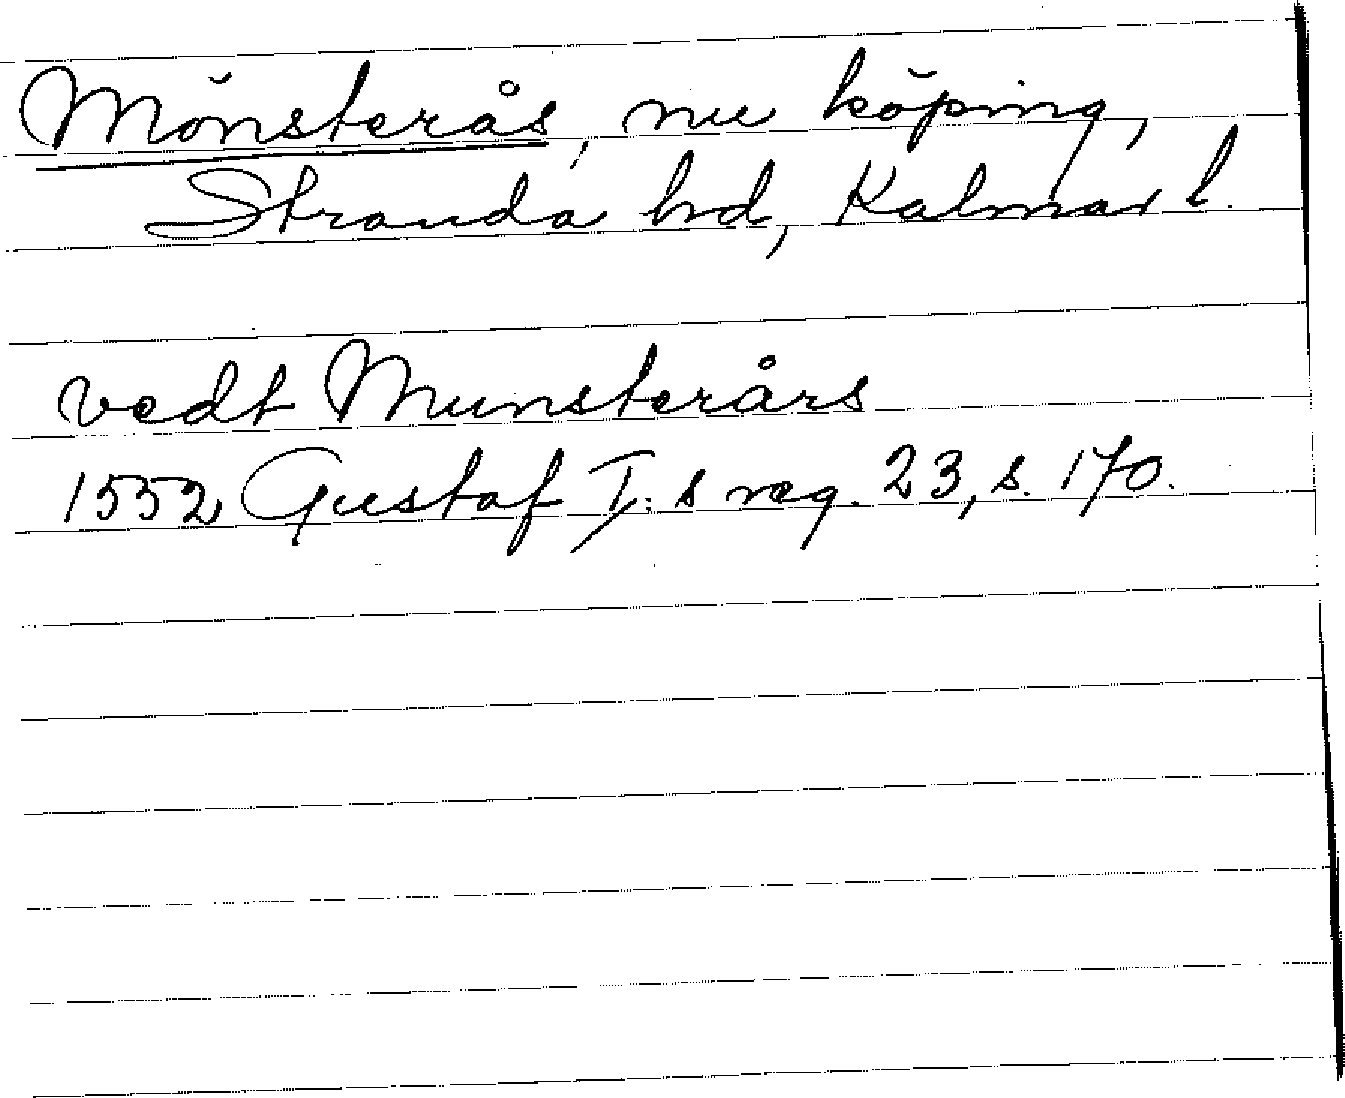 Mönsterås, nu köping,
Stranda hd, Kalmar l.
vedt Munsterårs
1552 Gustaf I:s reg. 23, s. 170.